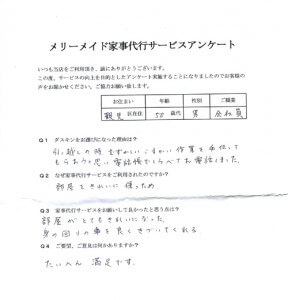 メリーメイド家事代行サービスアンケート
いつも当店をご利用頂き、誠にありがとうございます。
この度、サービスの向上を目的としたアンケート実施することになりましたのでお客様の
声をお聞かせください。ご協力お願い致します。
お住まい 年齢 性別 ご職業
鶴見 区在住 50 歳代 男 会社員
Q1 ダスキンをお選びになった理由は?
引っ越しの時 むずかしいこまかい作業を手伝って
もらおうと思い電話帳でしらべてお電話しました。
Q2 なぜ家事代行サービスをご利用されたのですか?
部屋をきれいに使うため
Q3 家事代行サービスをお願いして良かったと思う点は?
部屋がとてもきれいになった。
身の回りの事を良くきづいてくれる
Q4 ご要望、ご意見は何かありますか?
たいへん 満足です。